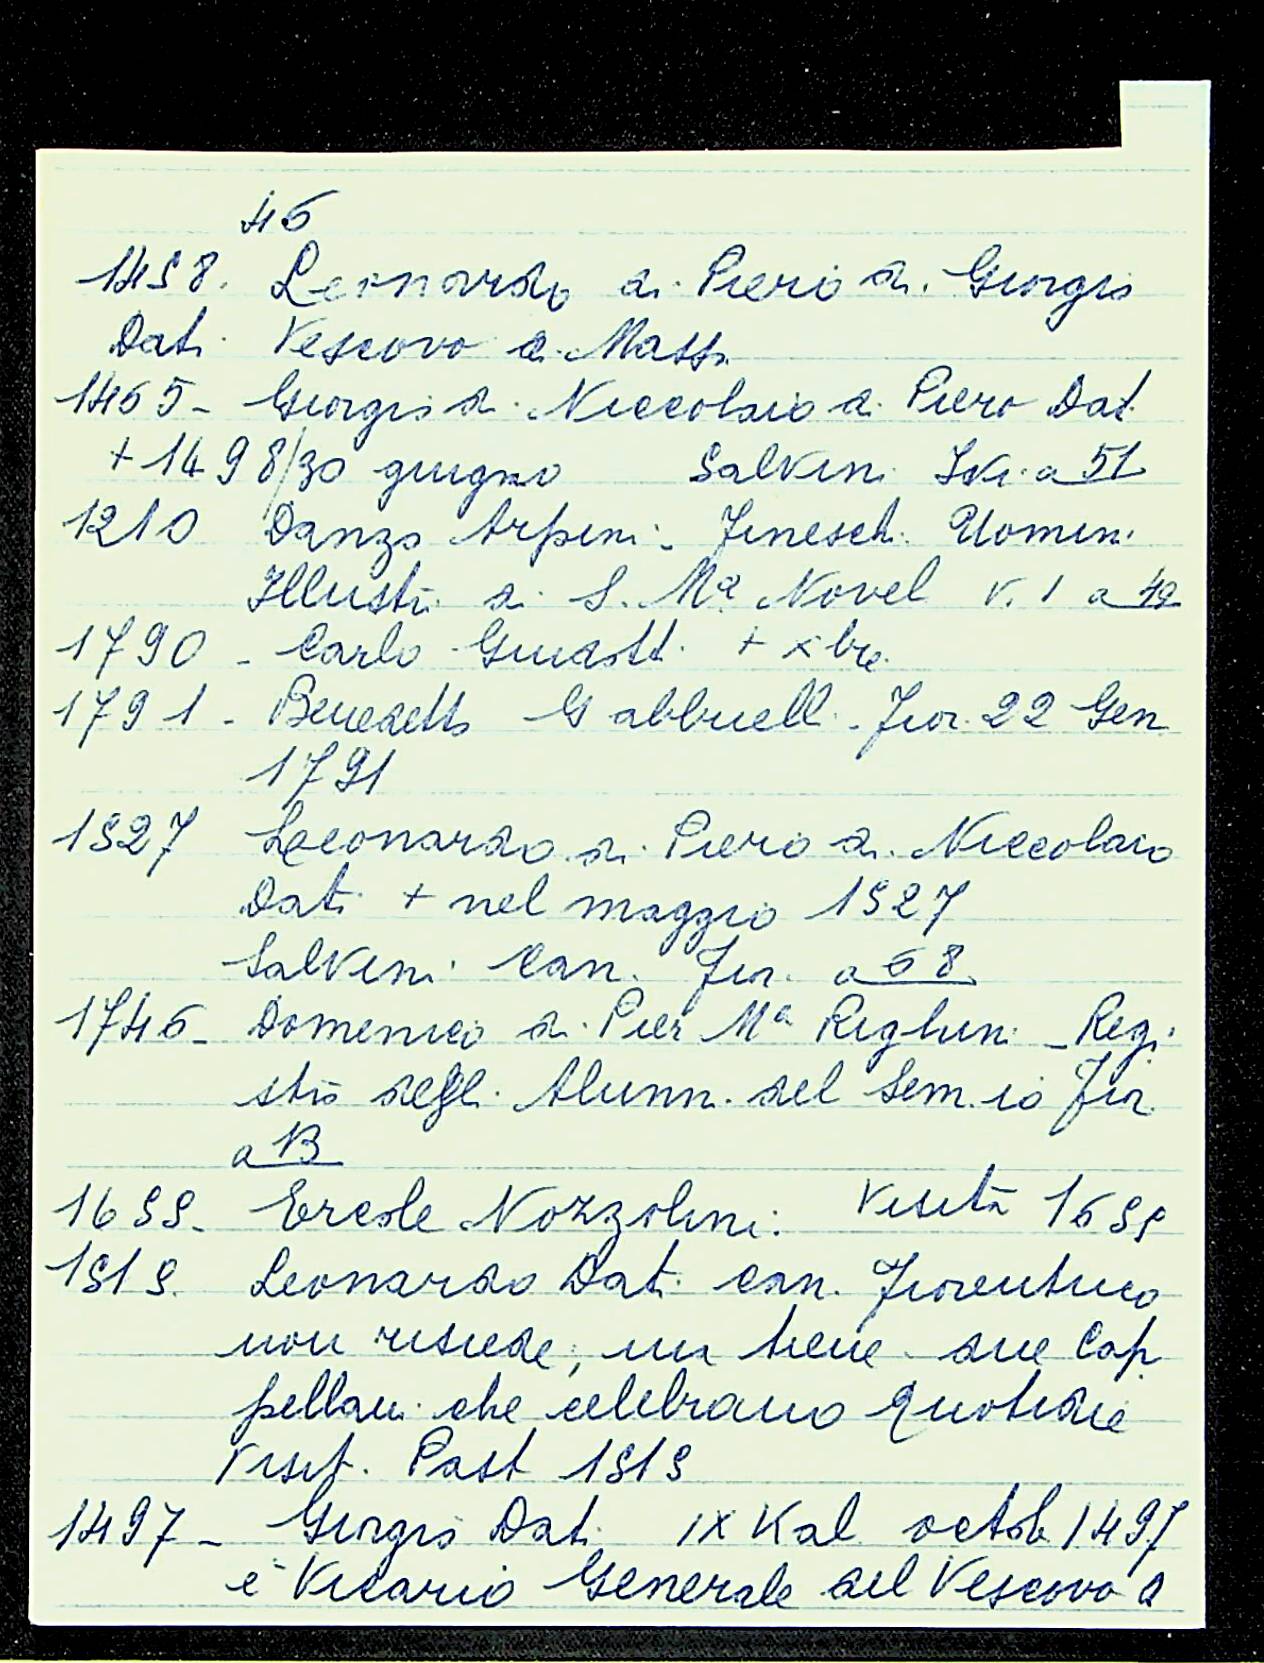 46
1458. Leonardo di Piero di Giorgio
Dati Vescovo di Massa
1465 - Giorgio di Niccolaio di Piero Dati
+ 1498/30 giugno Salvini Ivi a 51
1210 Danzo Arpini - Fineschi Uomini
Illustri di S. Mª Novel v. 1 a 42
1790 - Carlo Guidotti + xbre
1791 - Benedetto Gabbuelli - Fior. 22 Gen
1791
1527 Leonardo di Piero di Niccolaio
Dati + nel maggio 1527
Salvini Can. Fior. a 68
1746 - Domenico di Pier Mª Righini - Regi
stro degli Alunni del Sem.io Fior.
a 13
1655 - Ercole Nozzolini. Visita 1655
1515. Leonardo Dati can. Fiorentino
non risiede, ma tiene due Cap
pellani che celebrano quotidie
Visit. Past 1515
1497 - Giorgio Dati IX Kal octob 1497
è Vicario Generale del Vescovo di